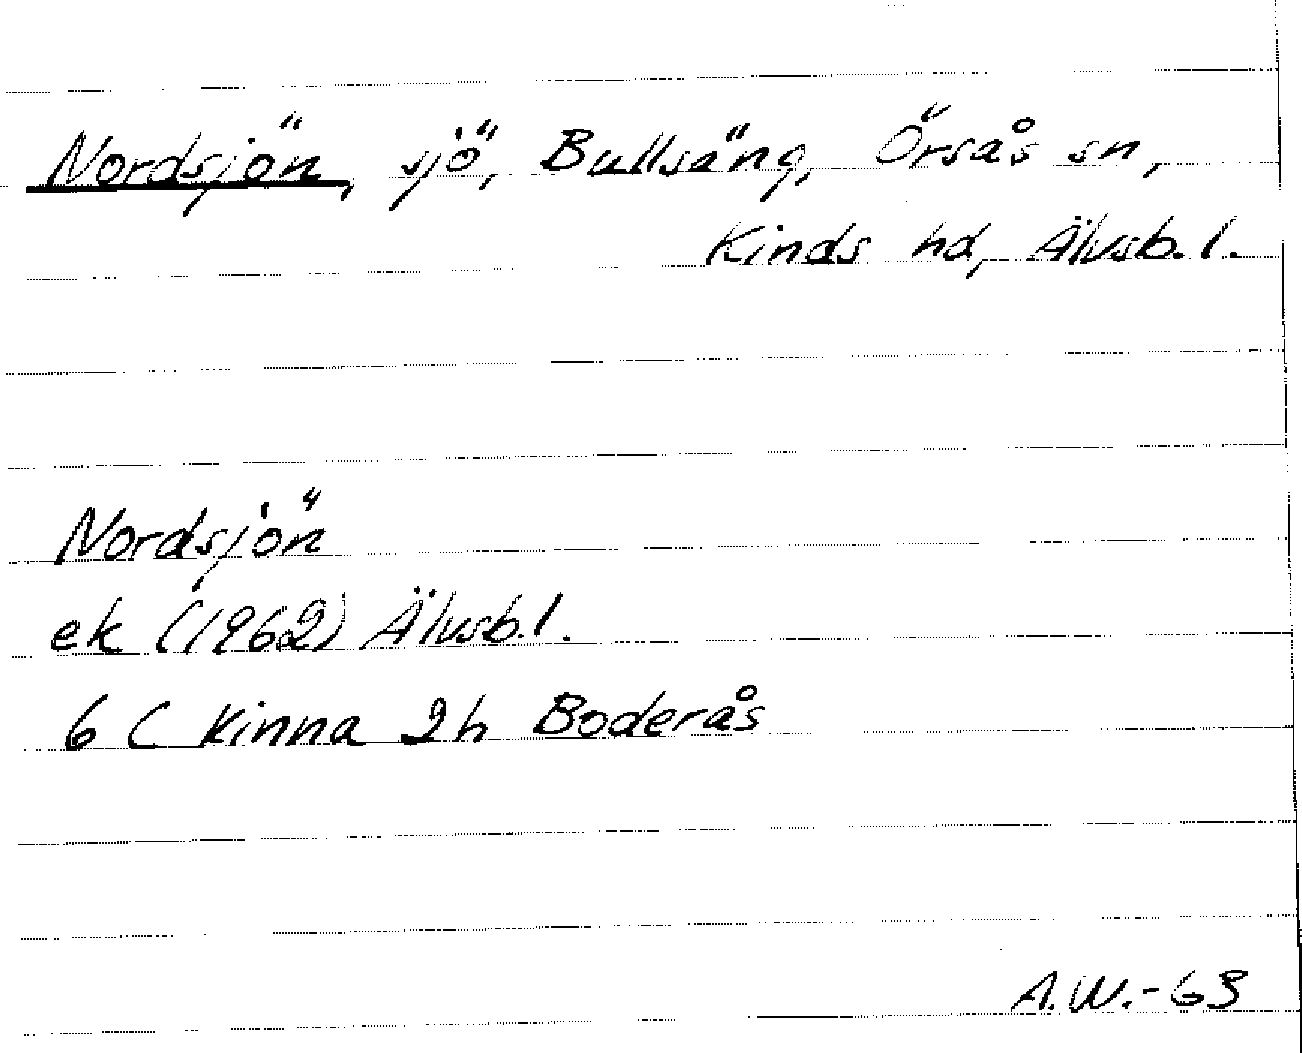 Nordsjön, sjö, Bullsäng, Örsås sn,
Kinds hd, Älvsb. l.
Nordsjön
ek (1962) Älvsb. l.
6 C Kinna 2h Boderås
A.W.-63